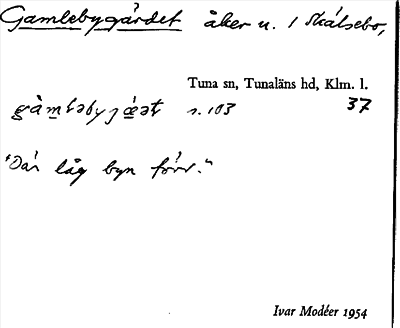 Gamlebygärdet åker n. / Skälsebo,
Tuna sn, Tunaläns hd, Klm. l.
s. 103 37
"Där låg byn förr."
Ivar Modéer 1954